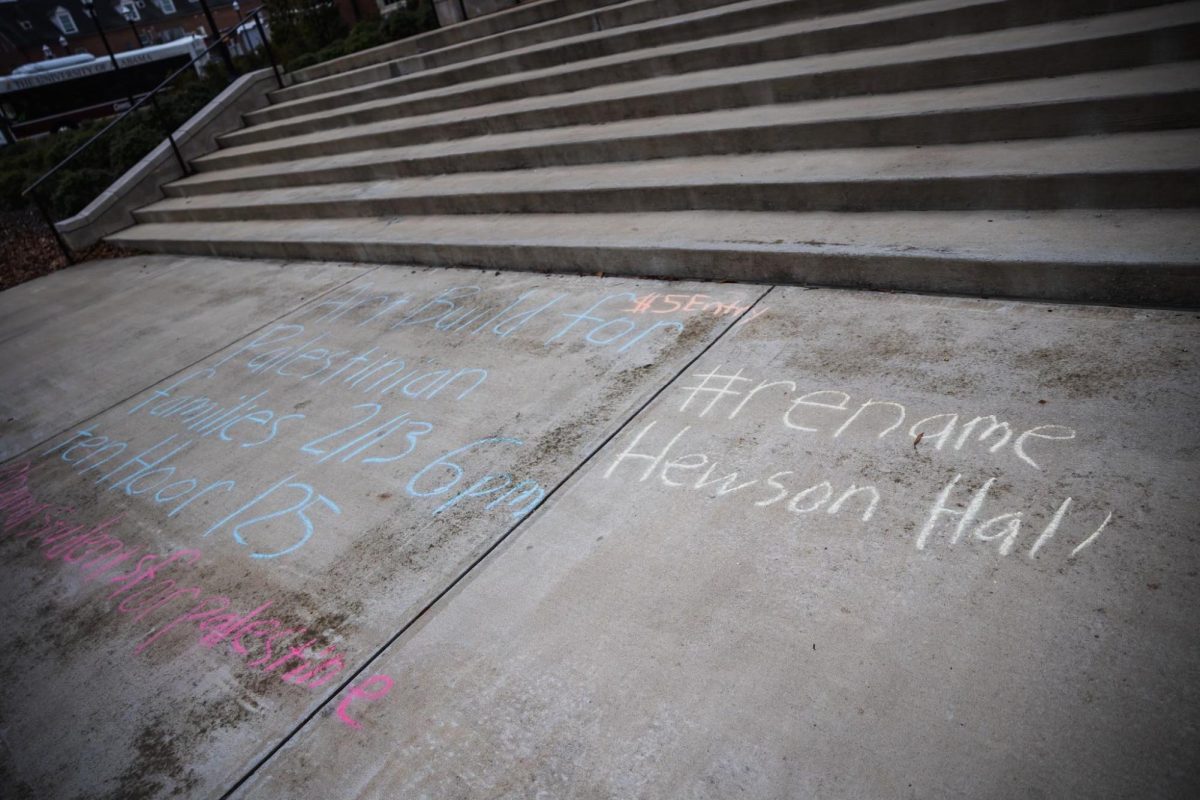 THE UNIVERSITY OF ALABAMA
Art Build for
#5Entry
Palestinian
families 2/13 6pm
tenHoor 125
for palestine
#rename
Hewson Hall